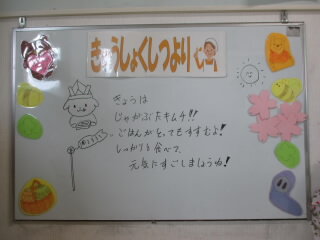 きゅうしょくしつより
きょうは
じゃがぶたキムチ!!
ごはんがとってもすすむよ!
しっかりと食べて、
元気にすごしましょうね!